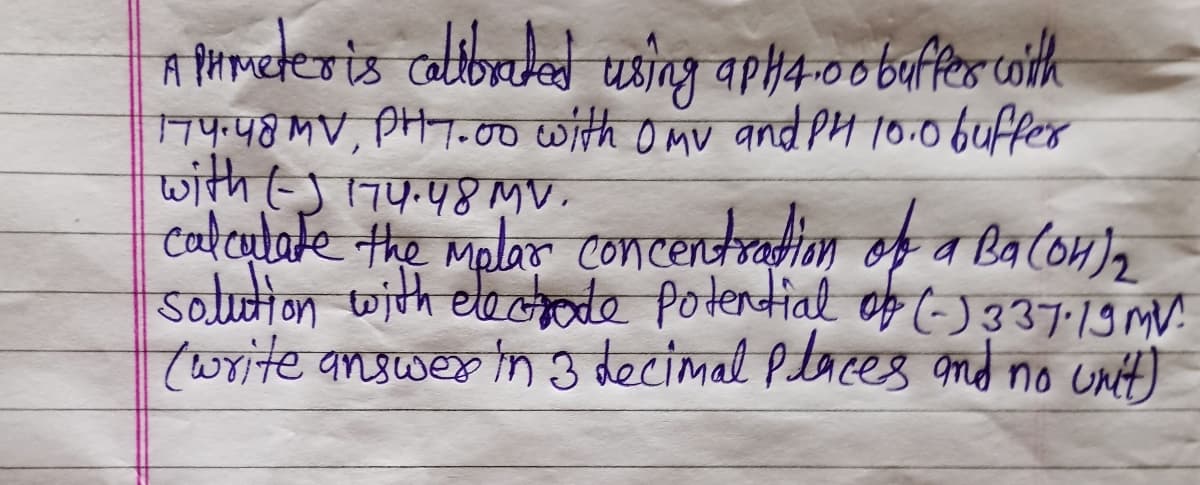 A PHmeter is calibrated using a pH4.00 buffer with
174.48 MV, PH7.00 with 0 mv and PH 10.0 buffer
with (-) 174.48 MV.
calculate the molar concentration of a Ba(OH)2
solution with electrode Potential of (-) 337.19 mV.
(write answer in 3 decimal places and no unit)